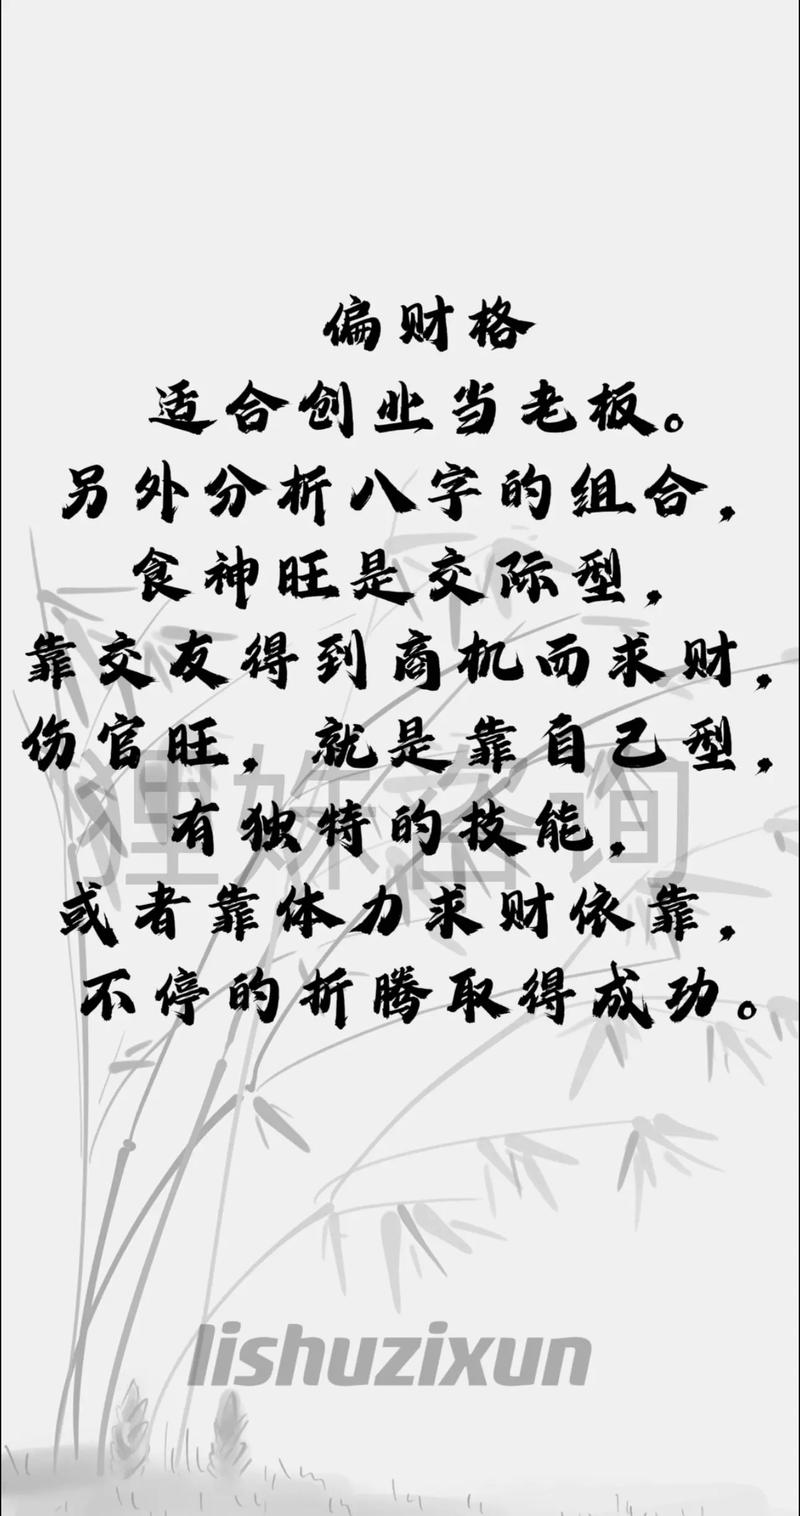 偏财格
适合创业当老板。
另外分析八字的组合，
食神旺是交际型，
靠交友得到商机而求财，
伤官旺，就是靠自己型，
有独特的技能，
或者靠体力求财依靠，
不停的折腾取得成功。
狸姝咨询
lishuzixun